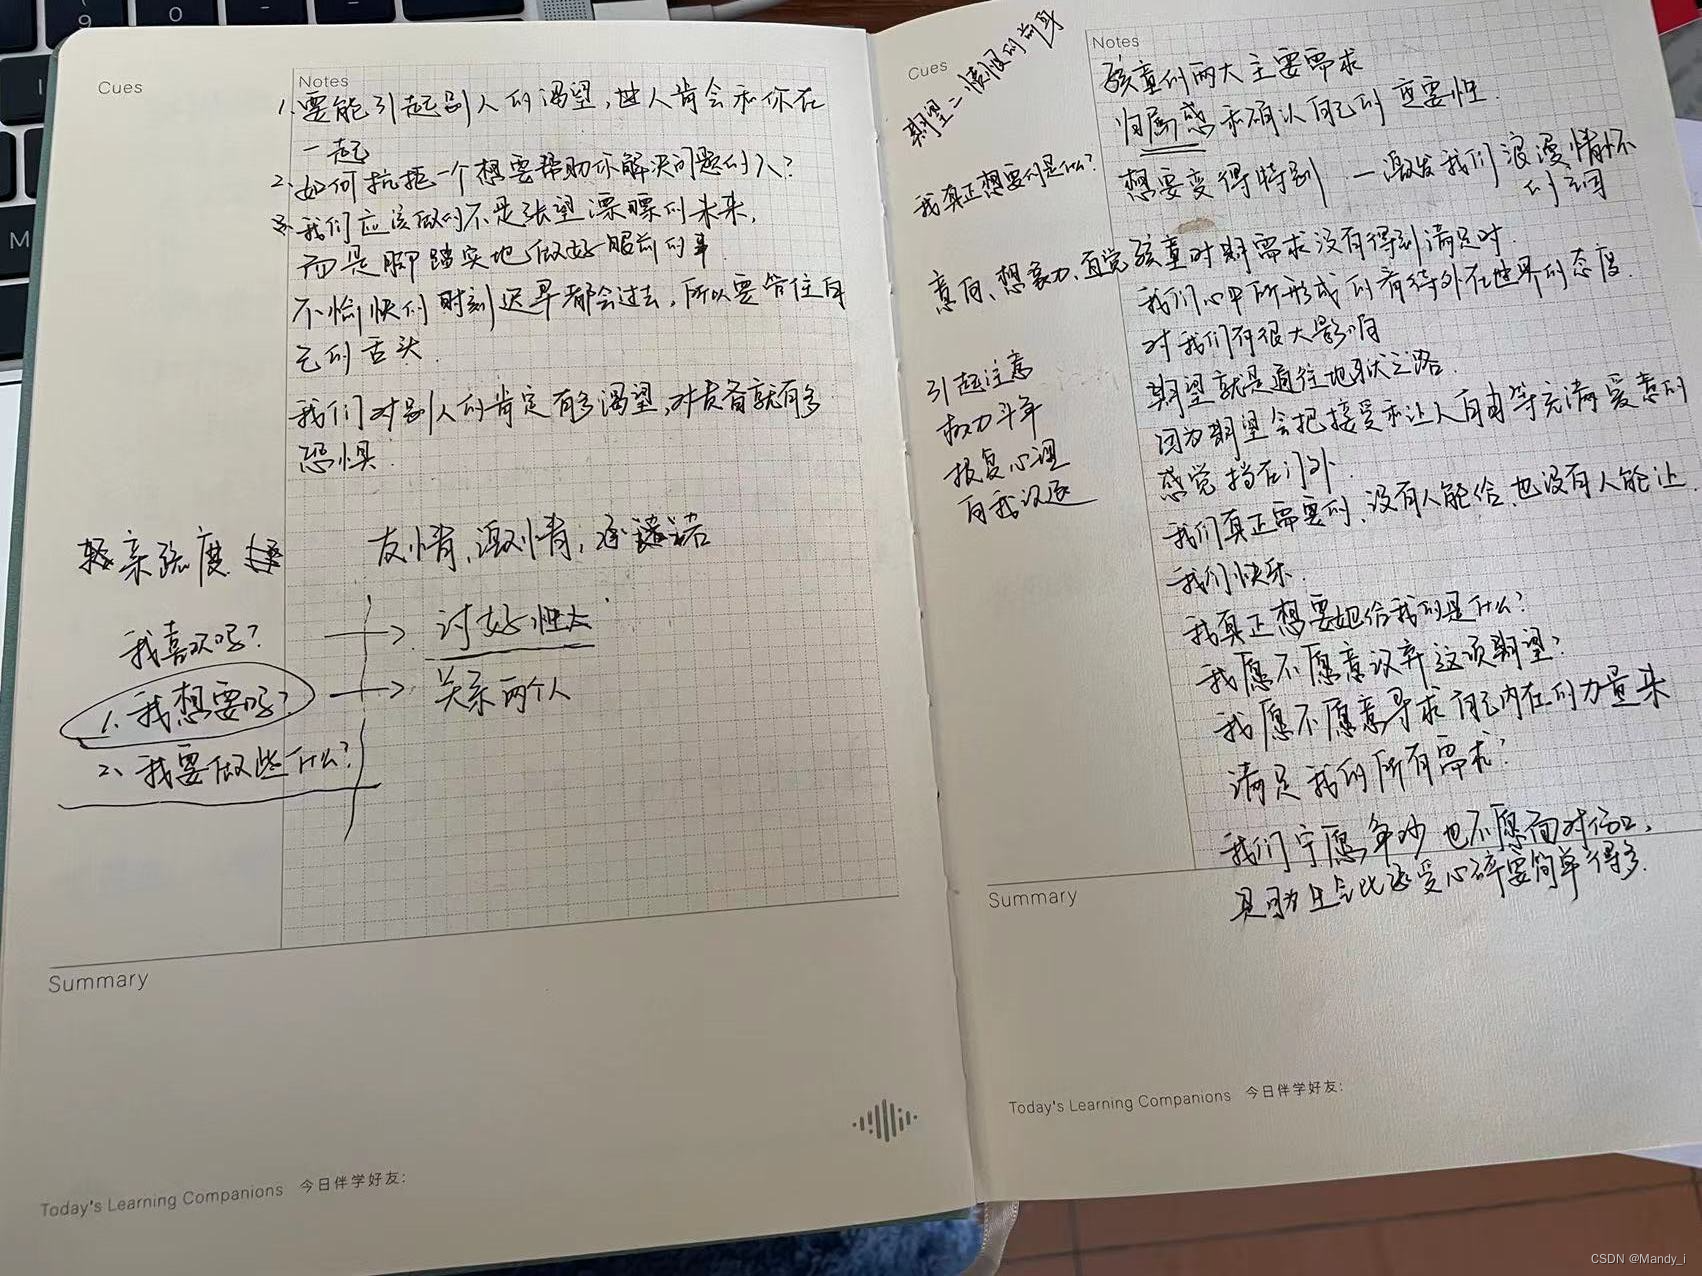 Cues
Notes
1、要能引起别人的渴望,世人肯会和你在
一起
2、如何抗拒一个想要帮助你解决问题的人?
3、我们应该做的不是张望漂的未来,
而是脚踏实地做好眼前的事
不愉快的时刻迟早都会过去,所以要管住自
己的舌头.
我们对别人的肯定有多渴望,对责备就有多
恐惧.
亲 度
友情,激情,承诺
我喜欢吗?
讨好性
1、我想要吗?
关系两个人
2、我要做些什么?
Summary
Today's Learning Companions 今日伴学好友:
Cues
Notes
期望=愤恨的前身
孩童的两大主要需求
归属感和确认自己的重要性.
我真正想要的是什么?
想要变得特别 — 激发我们浪漫情怀
的词
意向、想象力、直觉
孩童时期需求没有得到满足时.
我们心中所形成的看待外在世界的态度.
对我们有很大影响
引起注意
权力斗争
报复心理
自我
期望就是通往地狱之路.
因为期望会把接受和让人自由等充满爱意的
感觉挡在门外.
我们真正需要的,没有人能给,也没有人能让
我们快乐.
我真正想要她给我的是什么?
我愿不愿意放弃这项期望?
我愿不愿意寻求自己内在的力量来
满足我的所有需求?
我们宁愿争吵也不愿面对伤口,
因为生会比承受心碎要简单得多.
Summary
Today's Learning Companions 今日伴学好友:
CSDN @Mandy_i